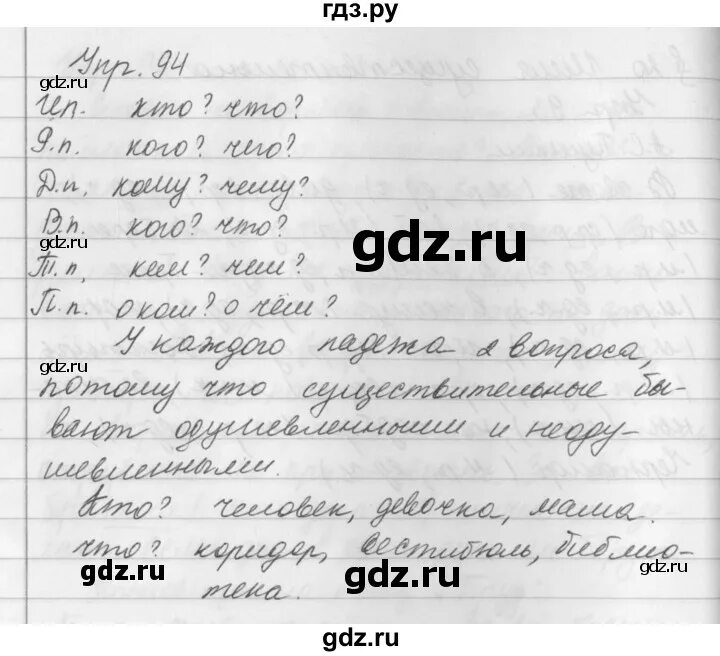 гдз.ру
Упр. 94
И.п. кто? что?
Р.п. кого? чего?
Д.п. кому? чему?
В.п. кого? что?
Т.п. кем? чем?
П.п. о ком? о чём?
У каждого падежа 2 вопроса,
потому что существительные бы-
вают одушевленными и неоду-
шевленными.
Кто? человек, девочка, мама.
что? коридор, вестибюль, библио-
тека.
gdz.ru
gdz.ru
gdz.ru
gdz.ru
gdz.ru